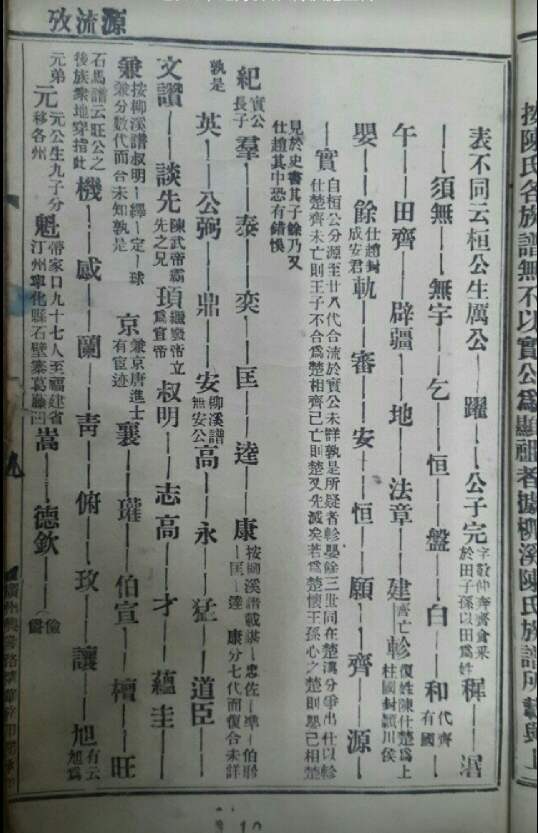 按陳氏各族譜無不以實公爲顯祖者據柳溪陳氏族譜所載與上
表不同云桓公生厲公——躍——公子完字敬仲奔齊食采於田子孫以田爲姓穉——湣
——須無——無宇——乞——恒——盤——白——和代齊有國
午——田齊——辟疆——地——法章——建齊亡軫復姓陳仕楚爲上柱國封潁川侯
嬰——餘仕趙封成安君軌——審——安——恒——願——齊——源——
——實自桓公分源至廿八代合流於實公未詳孰是所疑者軫嬰餘三世同在楚漢分爭出仕以軫仕楚齊未亡則王子不合爲楚相齊已亡則楚又先滅矣若爲楚懷王孫心之楚則嬰已相楚
見於史書其子餘乃又仕趙其中恐有錯悞
紀實公長子羣——泰——奕——匡——逵——康按柳溪譜載諶——忠——佐——準——伯眕——匡——達——康分七代而復合未詳
孰是英——公弼——鼎——安柳溪譜無安公高——永——猛——道臣
文讚——談先陳武帝霸先之兄頊繼發帝立爲宣帝叔明——志高——才——蘊圭
兼按柳溪譜叔明——繹——定——球兼分數代而合未知孰是京兼京唐進士有宦迹襄——瓘——伯宣——檀——旺
石馬譜云旺公之後族衆地窄指此機——感——蘭——青——俯——玫——讓——旭有云旭爲
元弟元元公生九子分移各州魁帶家口九十七人至福建省汀州寧化縣石壁寨葛藤凹嵩——德欽
源流攷